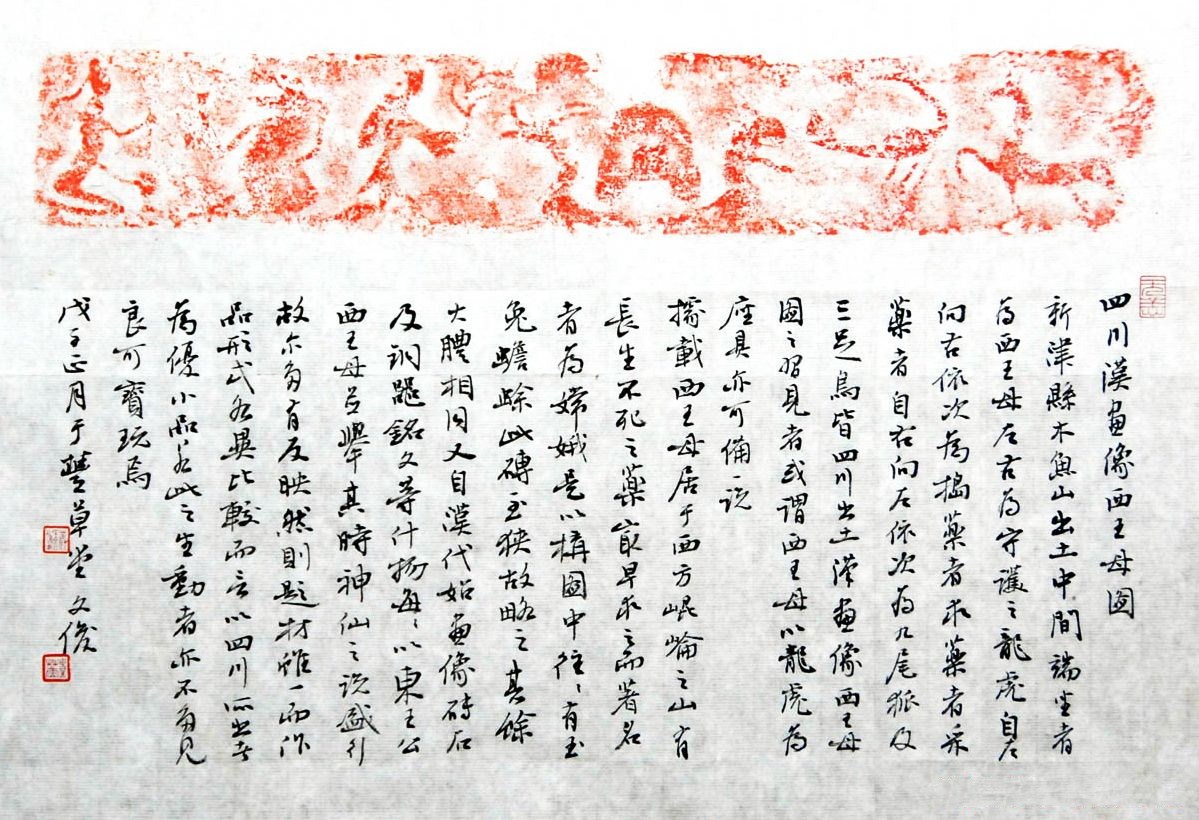 四川漢畫像西王母圖
新津縣木魚山出土中間端坐者
為西王母左右為守護之龍虎自左
向右依次為搗藥者求藥者采
藥者自右向左依次為九尾狐及
三足烏皆四川出土漢畫像西王母
圖之習見者或謂西王母以龍虎為
座具亦可備一說
據載西王母居于西方崐崘之山有
長生不死之藥最早求之而著名
者為嫦娥是以構圖中往〻有玉
兔蟾蜍此磚至狹故略之其餘
大體相同又自漢代始畫像磚石
及銅器銘文等什物每〻以東王公
西王母並舉其時神仙之說盛行
故尔多有反映然則題材雖一而作
品形式各異比較而言以四川所出者
為優小品若此之生動者亦不多見
良可寶玩焉
戊子正月于豐草堂文俊